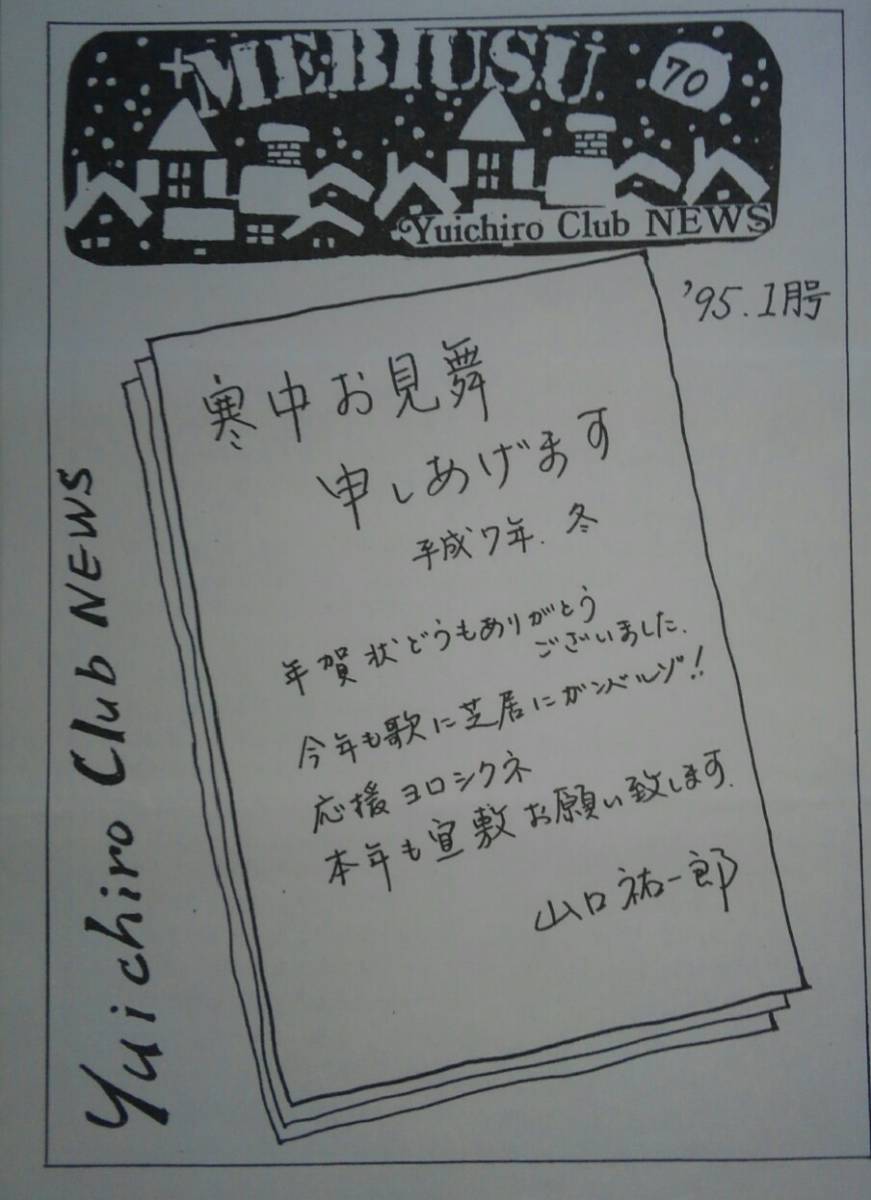 +MEBIUSU
70
Yuichiro Club NEWS
'95.1月号
寒中お見舞
申しあげます
平成7年.冬
年賀状どうもありがとう
ございました.
今年も歌に芝居にガンバルゾ!!
応援ヨロシクネ
本年も宜敷お願い致します.
山口祐一郎
Yuichiro Club NEWS